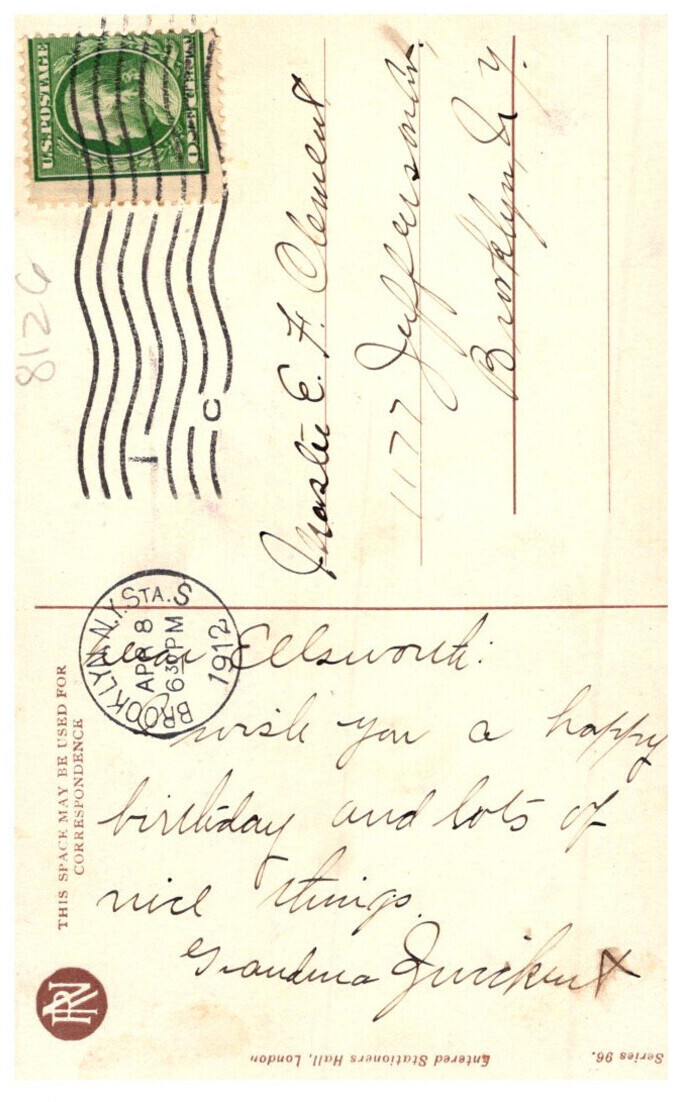 U.S. POSTAGE
8126
C
BROOKLYN, N.Y. STA. S
APR 8
6 30 PM
1912
Master E. F. Clement
1177 Jefferson Av.
Brooklyn, N.Y.
THIS SPACE MAY BE USED FOR
CORRESPONDENCE
Dear Ellsworth:
I wish you a happy
birthday and lots of
nice things.
Grandma
Series 96.
Entered Stationers Hall, London